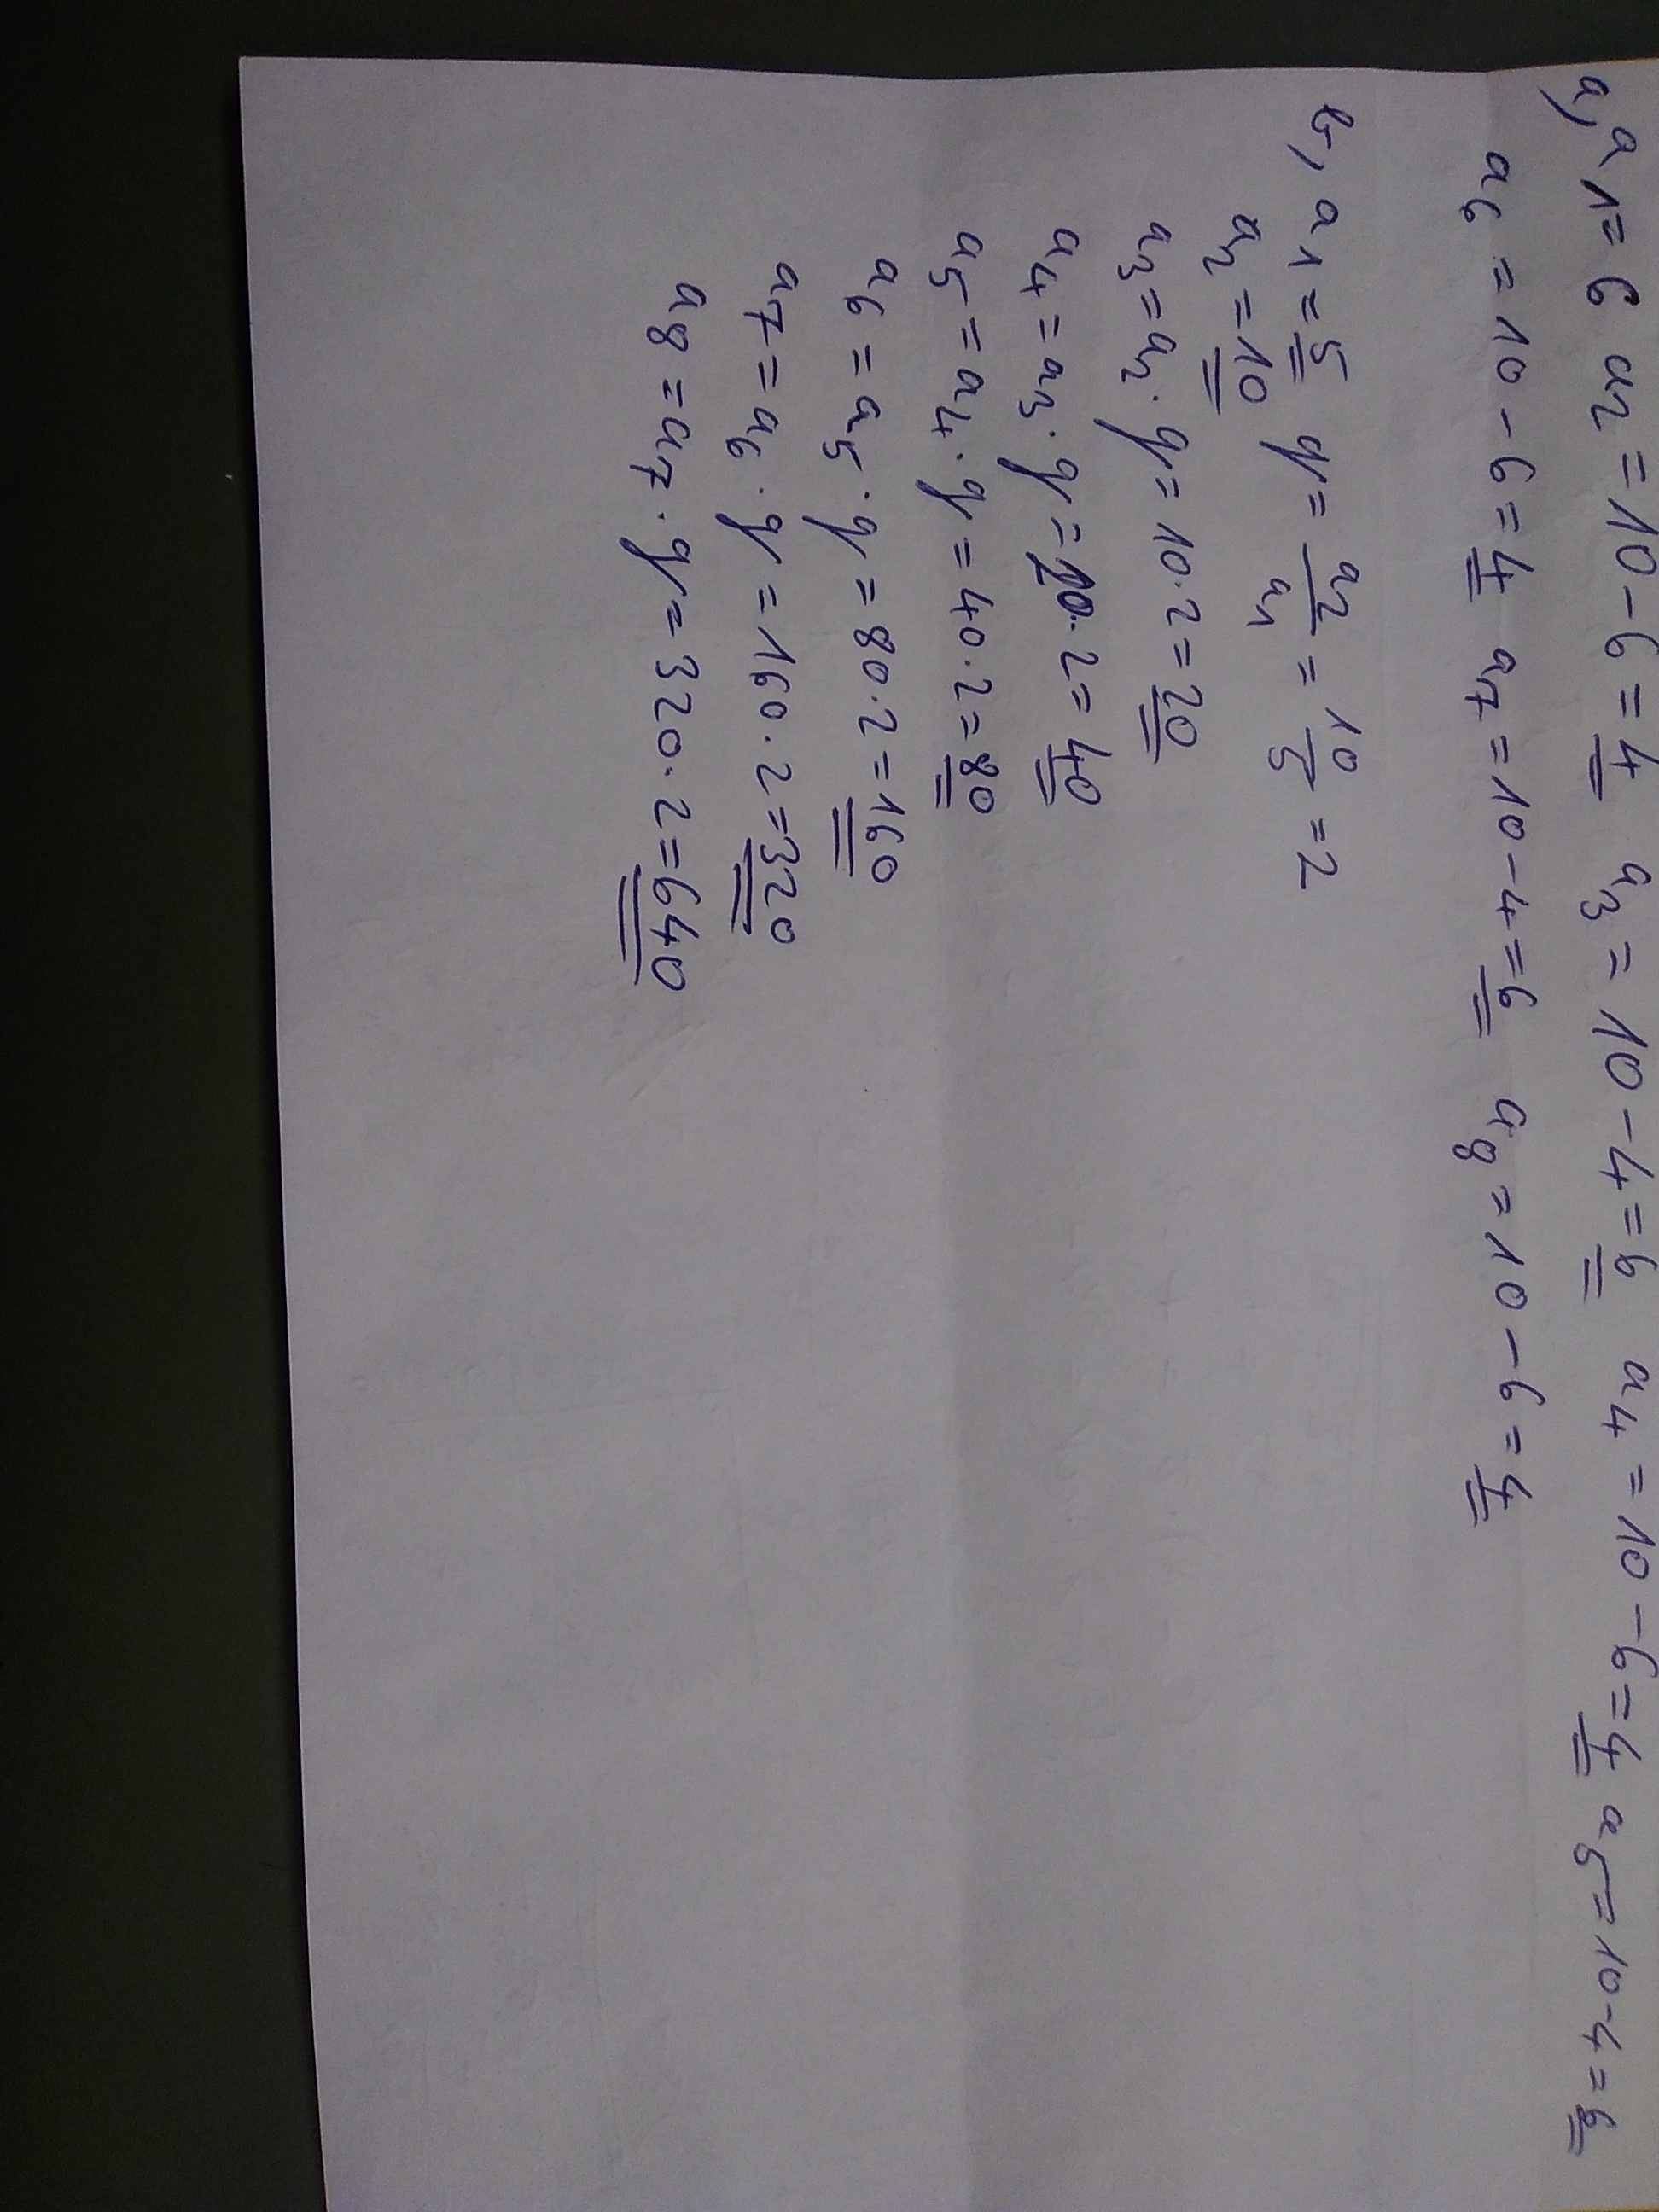 a, a1 = 6 a2 = 10 - 6 = 4 a3 = 10 - 4 = 6 a4 = 10 - 6 = 4 a5 = 10 - 4 = 6
a6 = 10 - 6 = 4 a7 = 10 - 4 = 6 a8 = 10 - 6 = 4
b, a1 = 5 q = a2/a1 = 10/5 = 2
a2 = 10
a3 = a2 . q = 10 . 2 = 20
a4 = a3 . q = 20 . 2 = 40
a5 = a4 . q = 40 . 2 = 80
a6 = a5 . q = 80 . 2 = 160
a7 = a6 . q = 160 . 2 = 320
a8 = a7 . q = 320 . 2 = 640